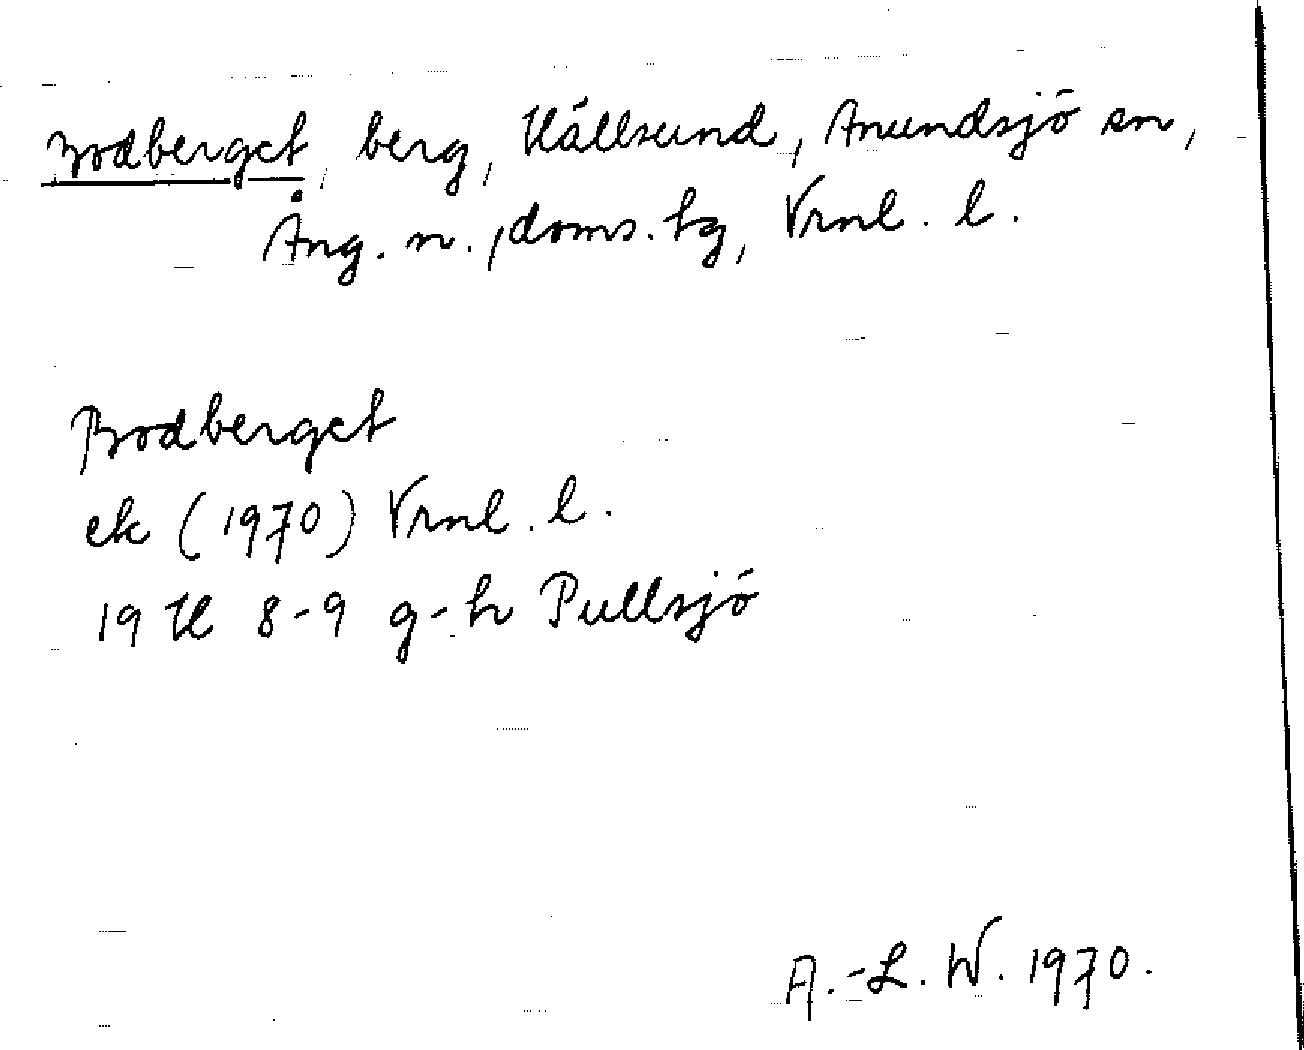 Bodberget, berg, Hällsund, Anundsjö sn,
Ång. n., doms. hg, Vrnl. l.
Bodberget
ek (1970) Vrnl. l.
19 H 8-9 g-h Pullsjö
A.-L. W. 1970.